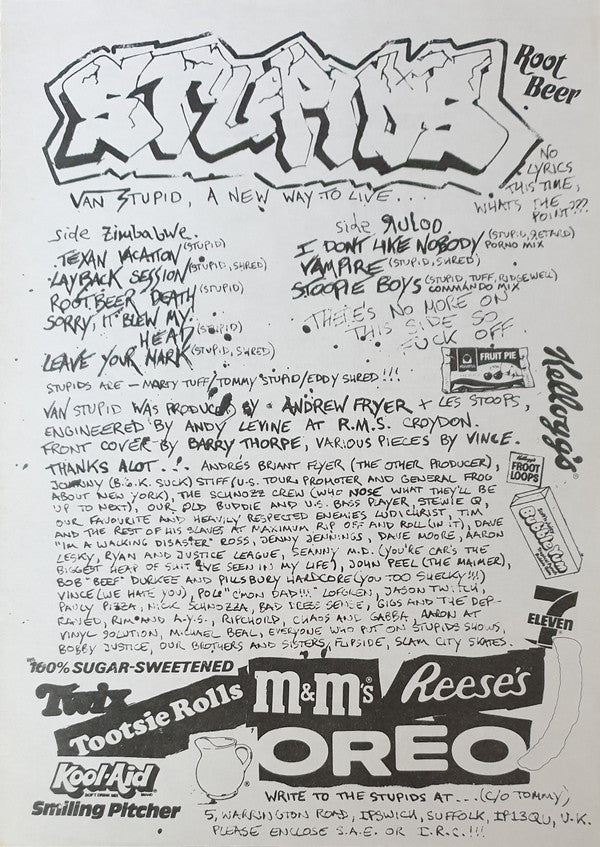 STUPIDS
Root
Beer
VAN STUPID, A NEW WAY TO LIVE...
NO
LYRICS
THIS TIME,
WHATS THE
POINT???
side Zimbabwe.
TEXAN VACATION (STUPID)
LAYBACK SESSION (STUPID, SHRED)
ROOTBEER DEATH (STUPID)
SORRY, IT BLEW MY
HEAD (STUPID)
LEAVE YOUR MARK (STUPID, SHRED)
side
I DONT LIKE NOBODY (STUPID, RETARD)
PORNO MIX
VAMPIRE (STUPID, SHRED)
STOOPIE BOYS (STUPID, TUFF, RIDGEWELL)
COMMANDO MIX
THERE'S NO MORE ON
THIS SIDE SO
FUCK OFF
STUPIDS ARE - MARTY TUFF/TOMMY STUPID/EDDY SHRED!!!
FRUIT PIE
Kellogg's
VAN STUPID WAS PRODUCED BY ANDREW FRYER + LES STOOPS,
ENGINEERED BY ANDY LEVINE AT R.M.S. CROYDON.
FRONT COVER BY BARRY THORPE, VARIOUS PIECES BY VINCE.
THANKS ALOT... ANDRÉS BRIANT FLYER (THE OTHER PRODUCER),
JOHNNY (B.G.K. SUCK) STIFF (U.S. TOUR PROMOTER AND GENERAL FROG
ABOUT NEW YORK), THE SCHNOZZ CREW (WHO NOSE WHAT THEY'LL BE
UP TO NEXT), OUR OLD BUDDIE AND U.S. BASS PLAYER STEVIE Q,
OUR FAVOURITE AND HEAVILY RESPECTED ENEMIES LUDICHRIST, TIM
AND THE REST OF HIS SLAVES AT MAXIMUM RIP OFF AND ROLL (IN IT), DAVE
"I'M A WALKING DISASTER" ROSS, JENNY JENNINGS, DAVE MOORE, AARON
LESKY, RYAN AND JUSTICE LEAGUE, SEANNY M.D. (YOU'RE CAR'S THE
BIGGEST HEAP OF SHIT I'VE SEEN IN MY LIFE), JOHN PEEL (THE MAIMER),
BOB "BEEF" DURKEE AND PILLSBURY HARDCORE (YOU TOO SHELKY!!!)
VINCE (WE HATE YOU), POLE "C'MON DAD!!!" LOFGREN, JASON TWITCH,
PAULY PIZZA, NICK SCHNOZZA, BAD DRESS SENSE, GIGS AND THE DEP-
RAVED, RIM AND A.Y.S., RIPCHORD, CHAOS AND GABBA, AARON AT
VINYL SOLUTION, MICHAEL BEAL, EVERYONE WHO PUT ON STUPIDS SHOWS,
BOBBY JUSTICE, OUR BROTHERS AND SISTERS, FLIPSIDE, SLAM CITY SKATES.
Kellogg's
FROOT
LOOPS
Bubble Yum
7
ELEVEN
100% SUGAR-SWEETENED
Twix
Tootsie Rolls
m&m's
Reese's
OREO
Kool-Aid
SOFT DRINK MIX
BRAND
Smiling Pitcher
WRITE TO THE STUPIDS AT... (C/O TOMMY),
5, WARRINGTON ROAD, IPSWICH, SUFFOLK, IP13QU, U.K.
PLEASE ENCLOSE S.A.E. OR I.R.C.!!!